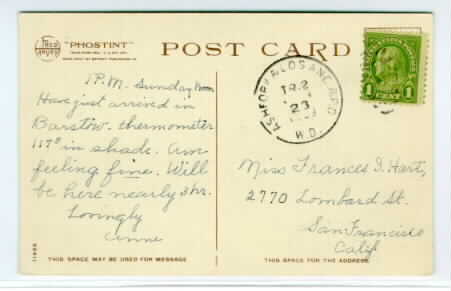 FRED HARVEY
"PHOSTINT"
POST CARD
1 P.M. Sunday
Have just arrived in
Barstow. thermometer
117° in shade. Am
feeling fine. Will
be here nearly 3 hr.
Lovingly
Anne
ASHFORK & LOS ANG. R.P.O.
TR. 2
23
W.D.
1 1
Miss Frances I. Hart,
2770 Lombard St.
San Francisco
Calif.
THIS SPACE MAY BE USED FOR MESSAGE
THIS SPACE FOR THE ADDRESS.